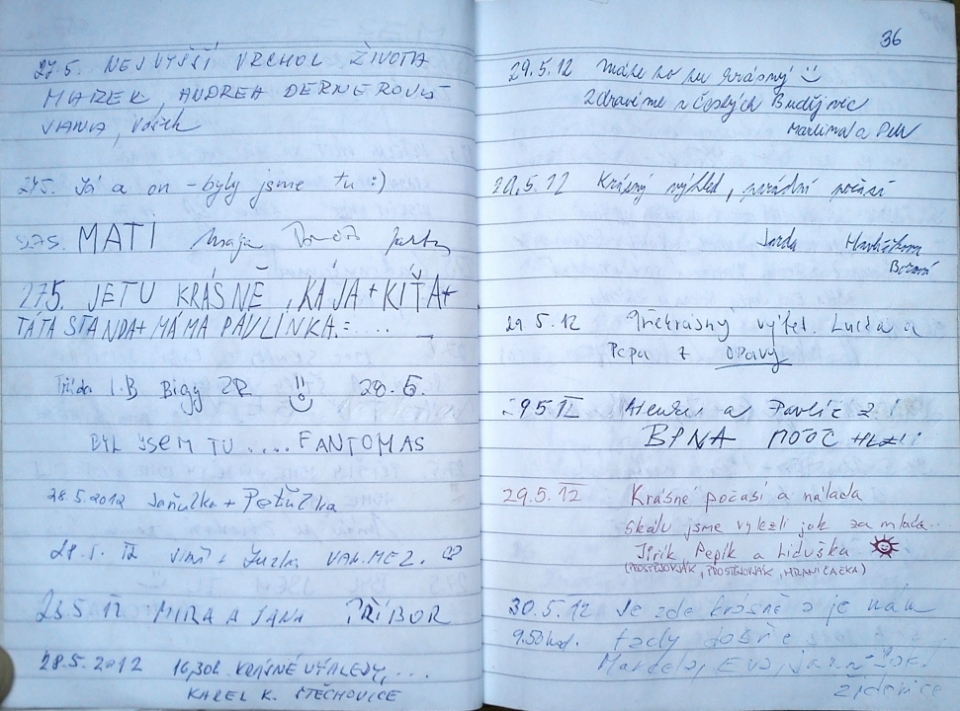 27.5. NEJVYŠŠÍ VRCHOL ŽIVOTA
MAREK, ANDREA DERNEROVÁ
27.5. Já a on - byly jsme tu :)
27.5. MATÍ
27.5. JE TU KRÁSNĚ, KÁJA + KIŤA +
TÁTA STANDA + MÁMA PAVLÍNKA. = ....
Třída I.B Bigy ZR 28.5.
BYL JSEM TU .... FANTOMAS
28.5.2012 Jaňulka + Petřulka
28.5. 12 + Zuzka VAL.MEZ.
28.5. 12 MIRA A JANA PŘÍBOR
28.5.2012 16,30h KRÁSNÉ VÝHLEDY,...
KAREL K. ŠTĚCHOVICE
36
29.5.12 máte to tu krásný
Zdravíme z Českých Budějovic
Martina a Petr
29.5.12 Krásný výhled, parádní počasí
Jarda
29.5.12 Překrásný výhled. Lucka a
Pepa z Opavy
29.5.12 a Pavlic z
29.5.12 Krásné počasí a nálada
skálu jsme vylezli jak za mlada..
Jiřík Pepík a Liduška
(PROSTĚJOVÁK, PROSTĚJOVÁK, HRANIČAČKA)
30.5.12 Je zde krásně a je nám
9.50hod. tady dobře
Marcela, Eva,
Židenice